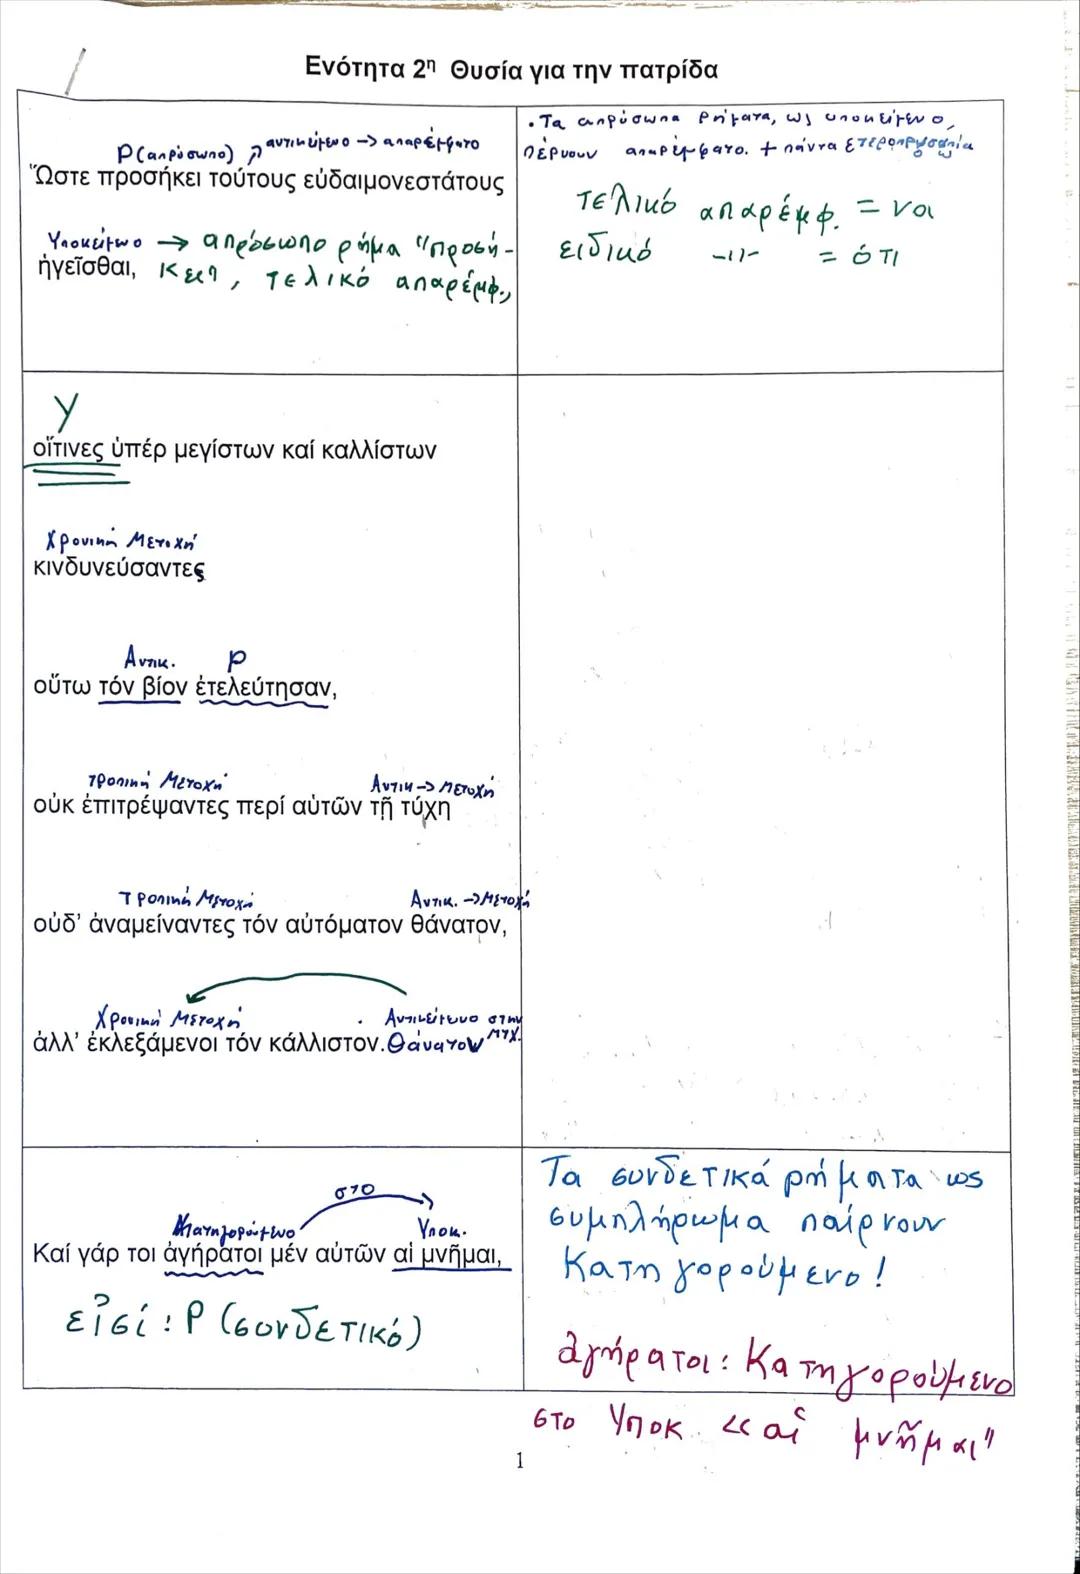 Ενότητα 2η Θυσία για την πατρίδα
Ρ(απρόσωπο) αντικείμενο -> απαρέμφατο
Ὥστε προσήκει τούτους εὐδαιμονεστάτους
Υποκείμενο → απρόσωπο ρήμα "προσή-
ἡγεῖσθαι, κει", τελικό απαρέμφ.,
• Τα απρόσωπα ρήματα, ως υποκείμενο,
παίρνουν απαρέμφατο. + πάντα ετεροπροσωπία
τελικό απαρέμφ. = να
ειδικό -//- = ότι
Υ
οἵτινες ὑπέρ μεγίστων καί καλλίστων
Χρονική Μετοχή
κινδυνεύσαντες
Αντικ. Ρ
οὕτω τόν βίον ἐτελεύτησαν,
Τροπική Μετοχή Αντικ -> Μετοχή
οὐκ ἐπιτρέψαντες περί αὐτῶν τῇ τύχῃ
Τροπική Μετοχή Αντικ. -> Μετοχή
οὐδ' ἀναμείναντες τόν αὐτόματον θάνατον,
Χρονική Μετοχή Αντικείμενο στην
ἀλλ' ἐκλεξάμενοι τόν κάλλιστον. θάνατον μτχ.
στο
Κατηγορούμενο Υποκ.
Καί γάρ τοι ἀγήρατοι μέν αὐτῶν αἱ μνῆμαι,
εἰσί: Ρ (συνδετικό)
Τα συνδετικά ρήματα ως
συμπλήρωμα παίρνουν
Κατηγορούμενο!
ἀγήρατοι: Κατηγορούμενο
στο Υποκ «αἱ μνῆμαι"
1